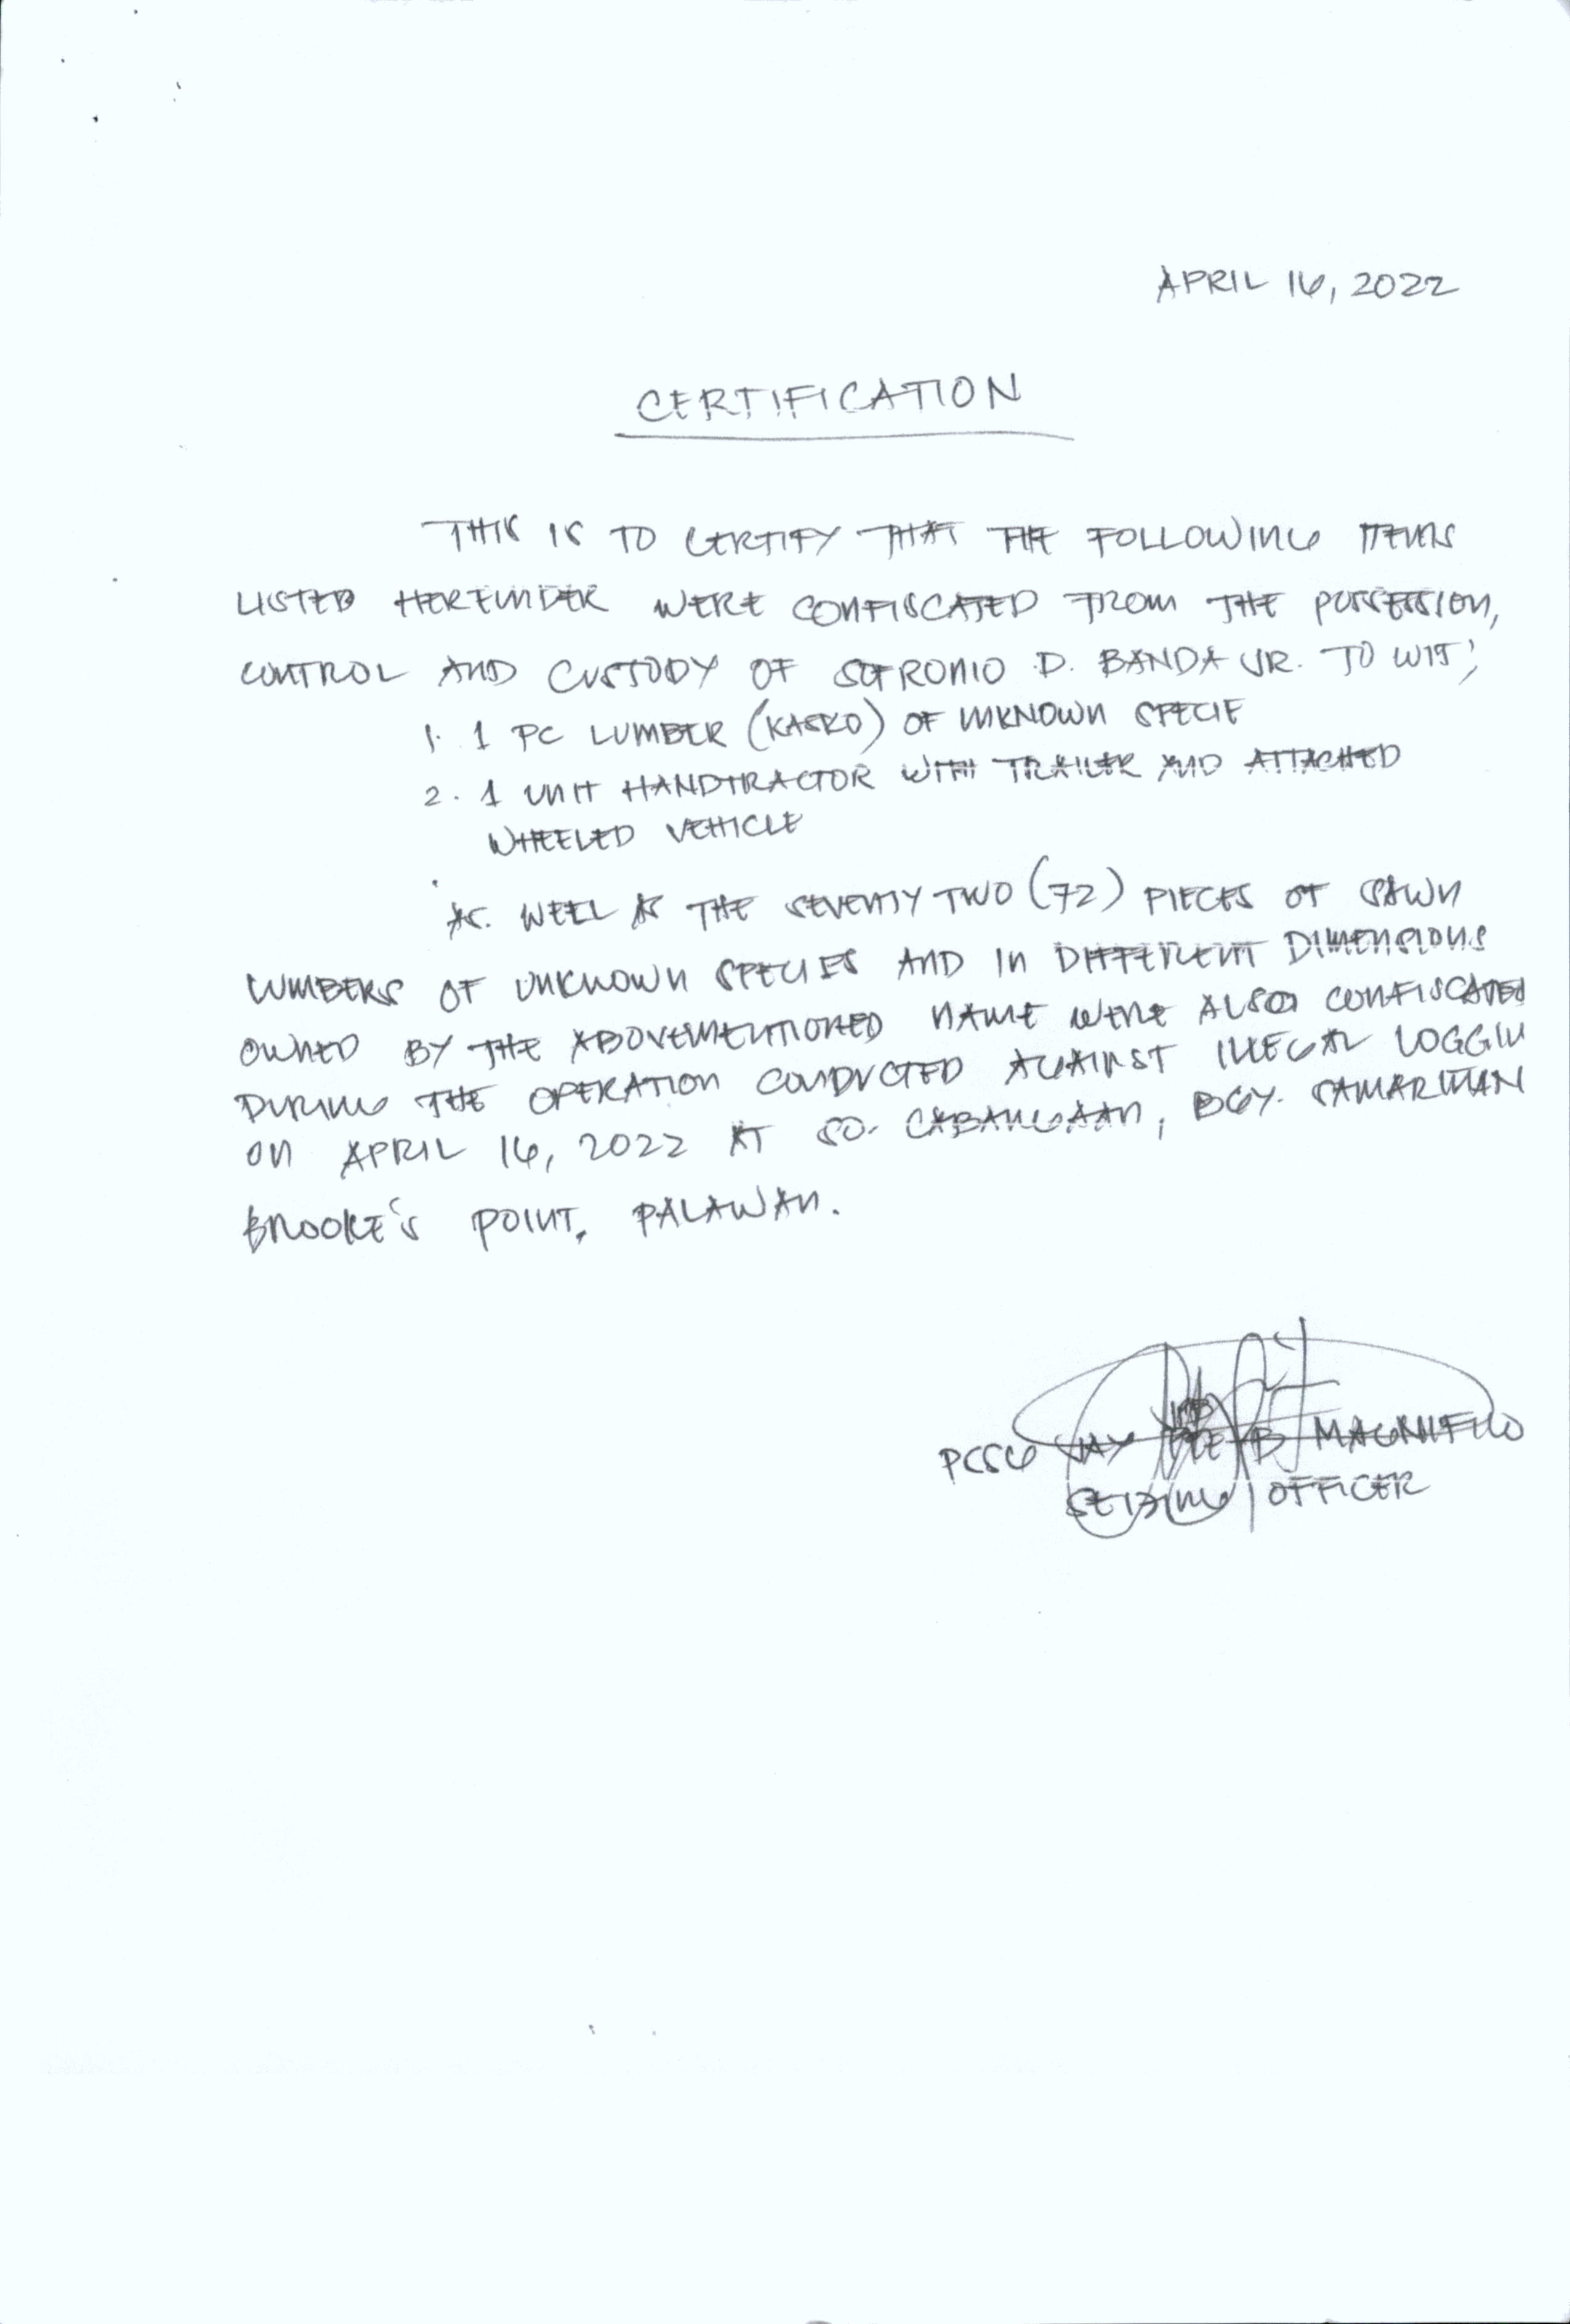 APRIL 16, 2022
CERTIFICATION
THIS IS TO CERTIFY THAT THE FOLLOWING ITEMS
LISTED HEREUNDER WERE CONFISCATED FROM THE POSSESSION,
CONTROL AND CUSTODY OF SOFRONIO D. BANDA JR. TO WIT;
1. 1 PC LUMBER (KASKO) OF UNKNOWN SPECIE
2. 1 UNIT HANDTRACTOR WITH TRAILER AND ATTACHED
WHEELED VEHICLE
AS. WELL AS THE SEVENTY TWO (72) PIECES OF SAWN
LUMBERS OF UNKNOWN SPECIES AND IN DIFFERENT DIMENSIONS
OWNED BY THE ABOVEMENTIONED NAME WERE ALSO CONFISCATED
DURING THE OPERATION CONDUCTED AGAINST ILLEGAL LOGGIN
ON APRIL 16, 2022 AT SO. CABANGAAN, BGY. SAMARIÑANA
BROOKE'S POINT, PALAWAN.
JAY B MAGNIFICO
SEIZING OFFICER